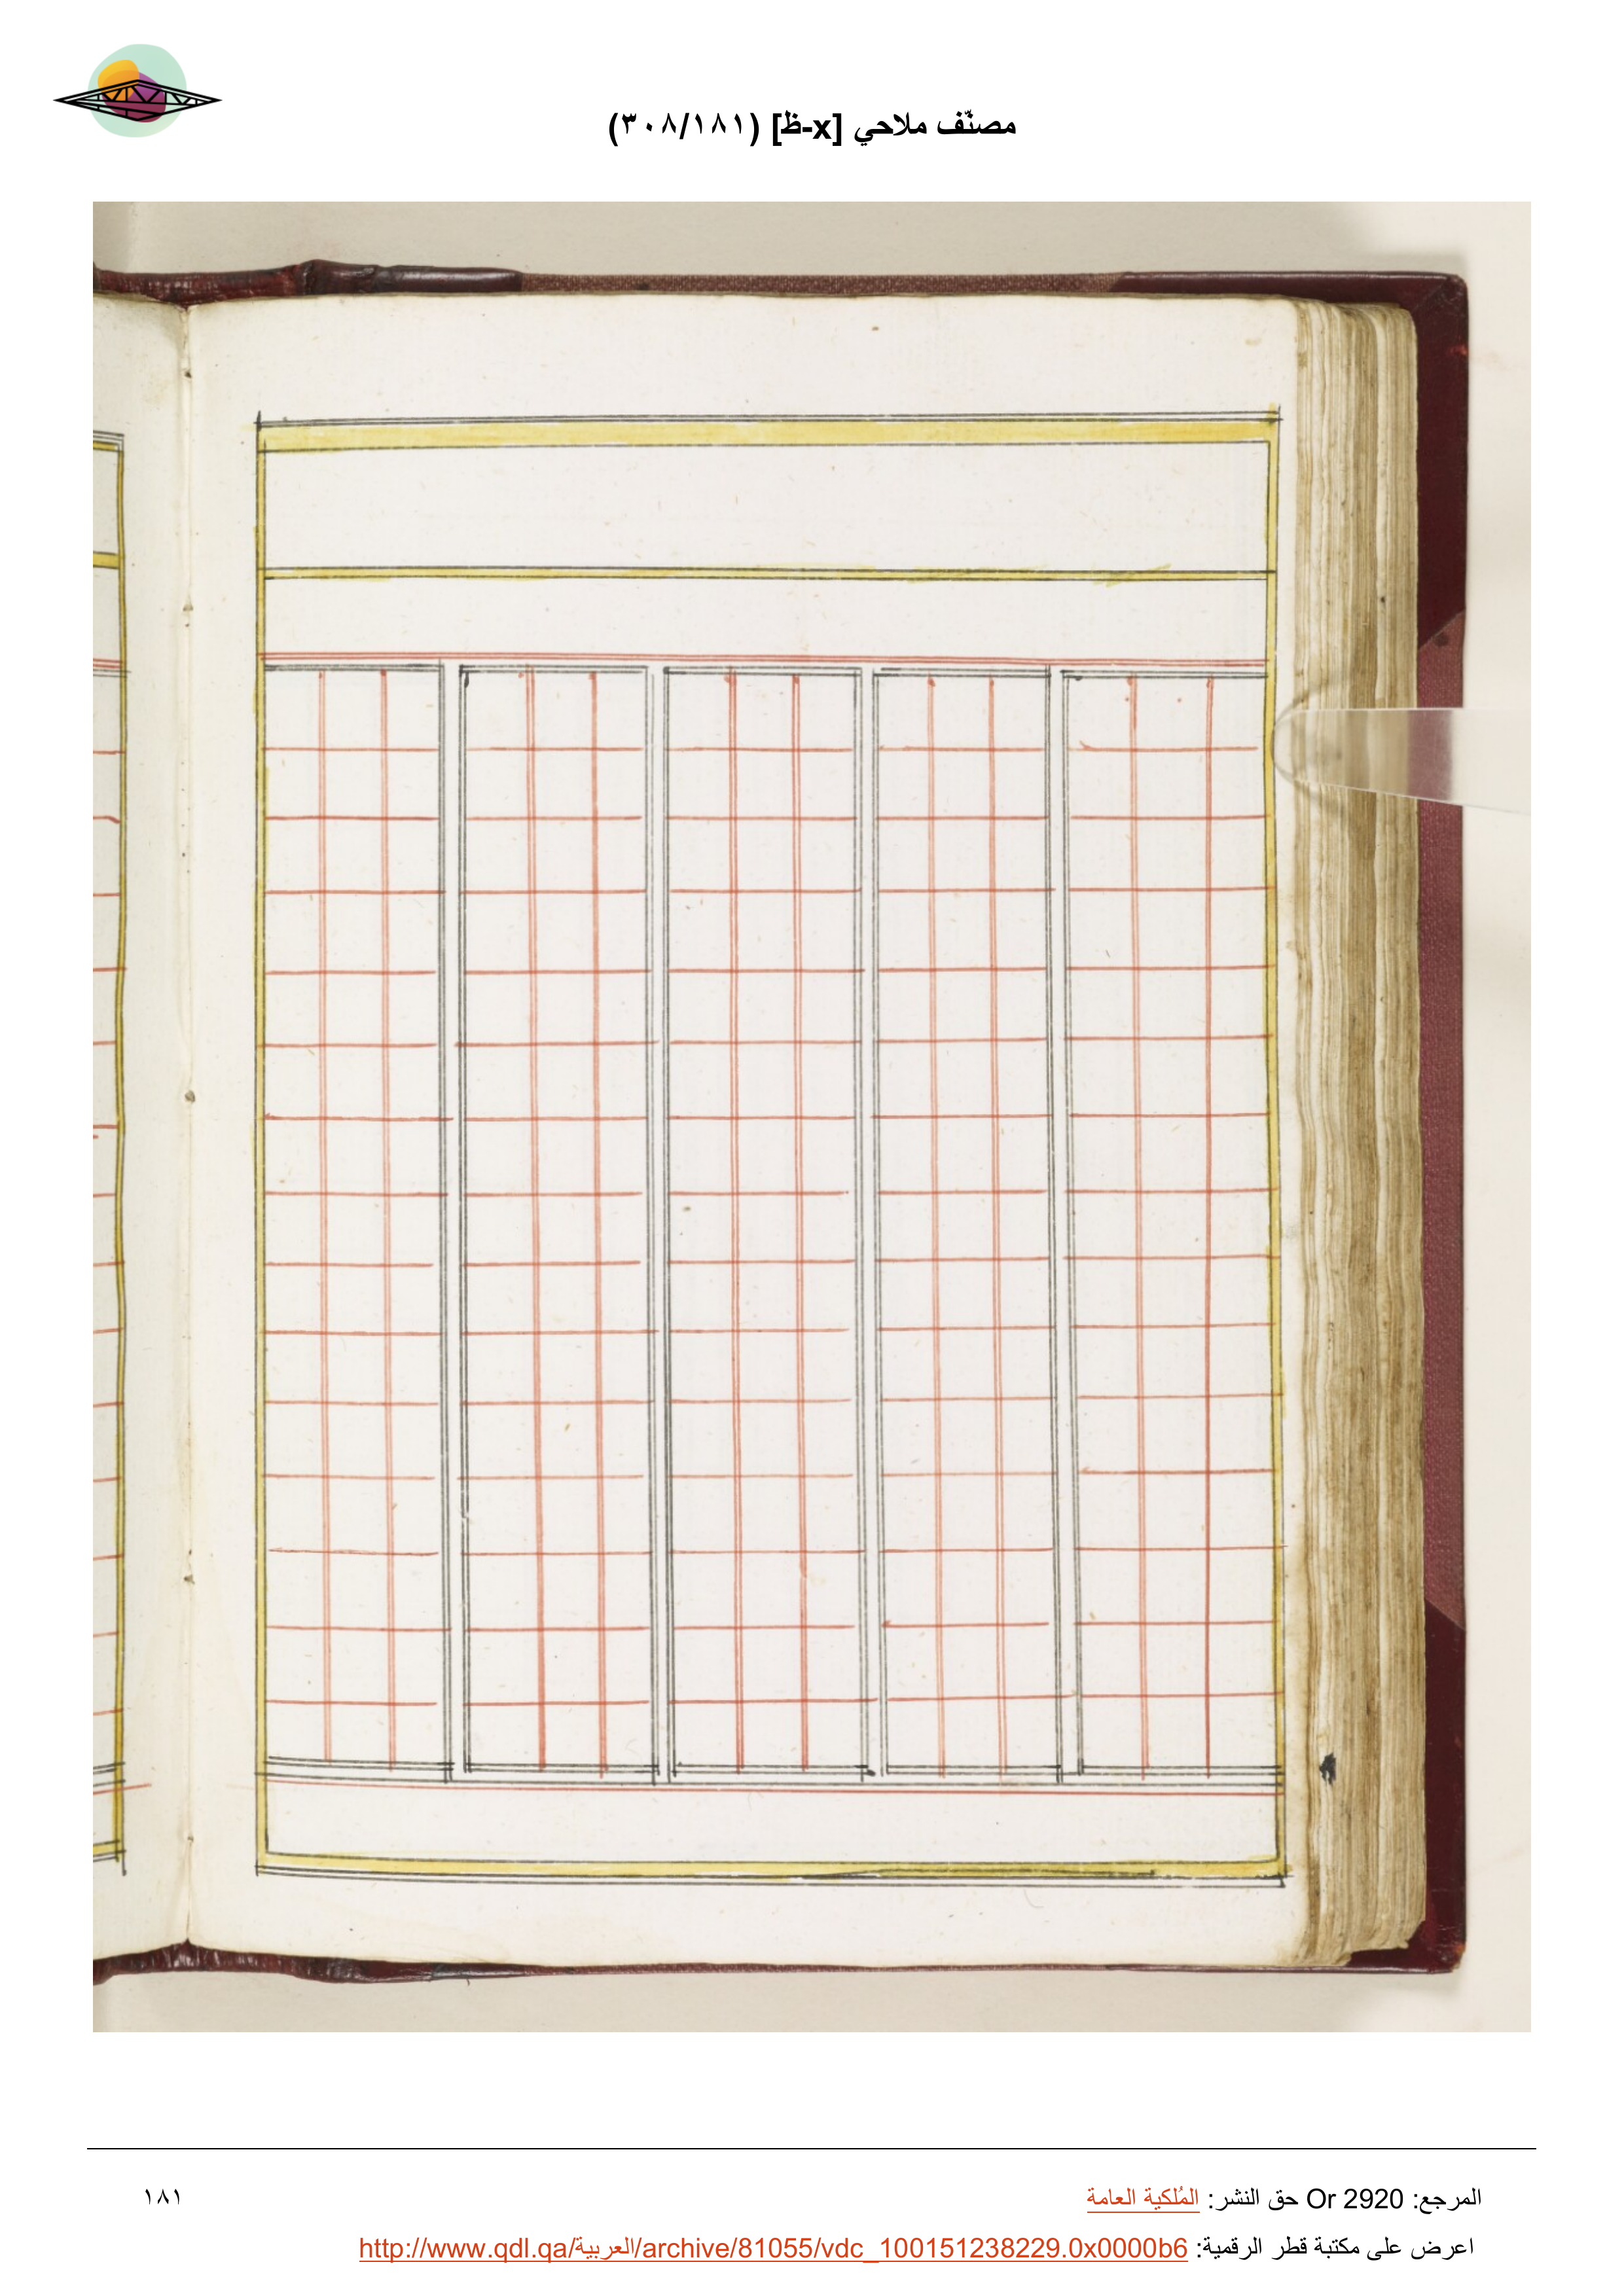 مصنّف ملاحي [x-ظ] (٣٠٨/١٨١)
المرجع: Or 2920 حق النشر: المُلكية العامة
١٨١
اعرض على مكتبة قطر الرقمية: http://www.qdl.qa/العربية/archive/81055/vdc_100151238229.0x0000b6